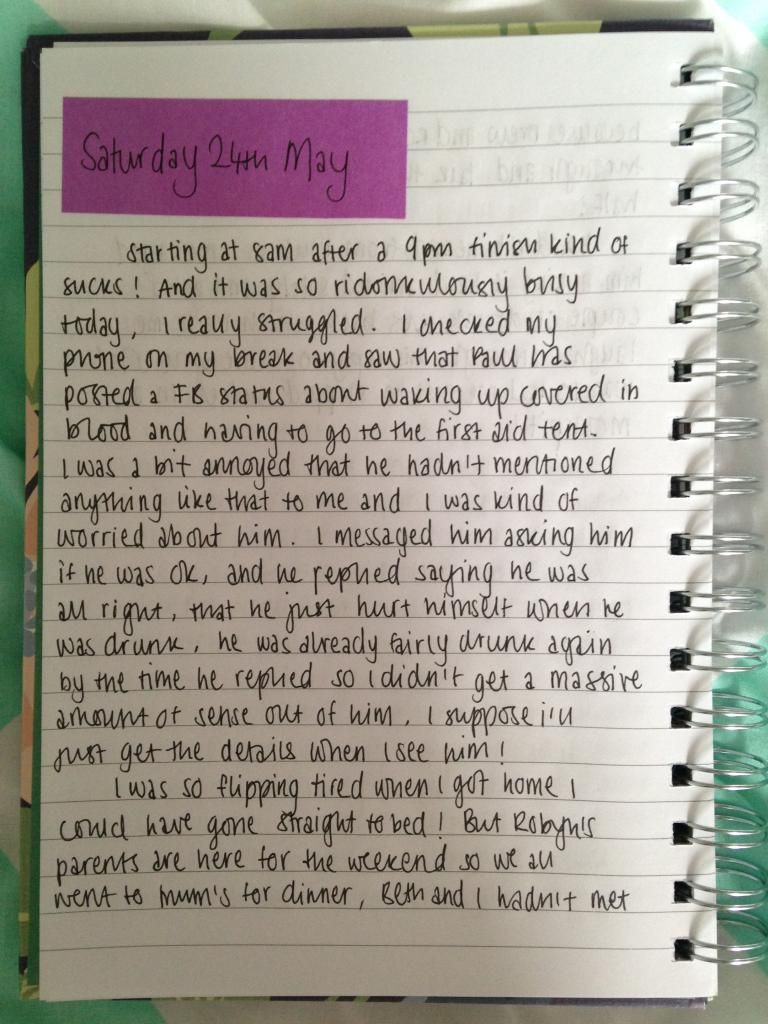 Saturday 24th May
Starting at 8am after a 9pm finish kind of
sucks! And it was so ridonkulously busy
today, I really struggled. I checked my
phone on my break and saw that Paul has
posted a FB status about waking up covered in
blood and having to go to the first aid tent.
I was a bit annoyed that he hadn't mentioned
anything like that to me and I was kind of
worried about him. I messaged him asking him
if he was ok, and he replied saying he was
all right, that he just hurt himself when he
was drunk, he was already fairly drunk again
by the time he replied so I didn't get a massive
amount of sense out of him. I suppose i'll
just get the details when I see him!
I was so flipping tired when I got home I
could have gone straight to bed! But Robyn's
parents are here for the weekend so we all
went to mum's for dinner, Beth and I hadn't met